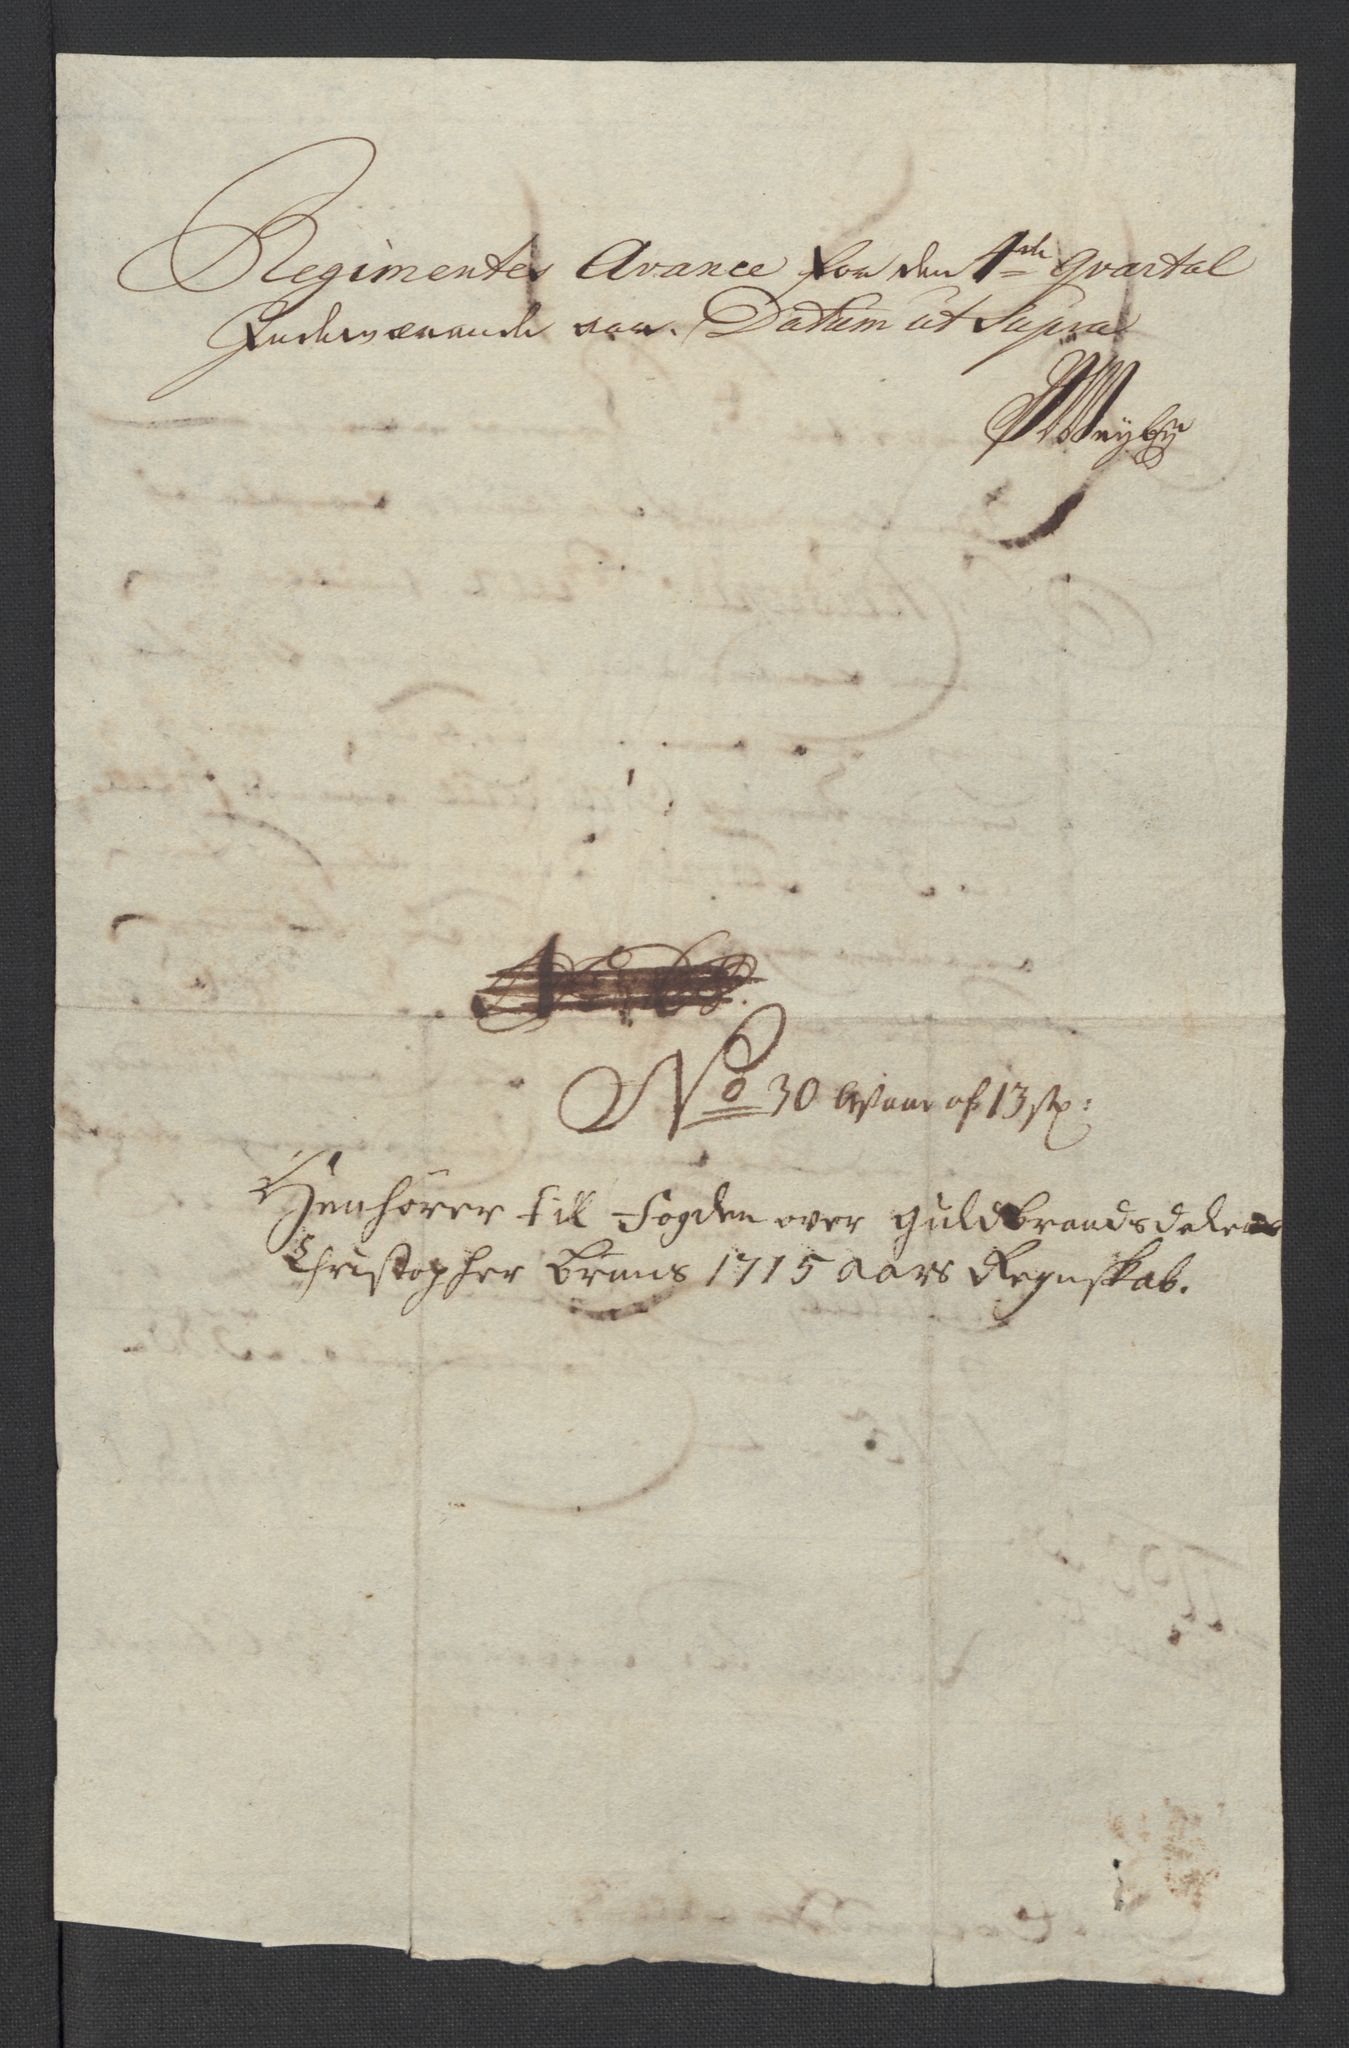 Regimentes Avance for den 1ste qvartal
Inderværende aar. Datum ut Supra
No 30 hvaar af 13 st:
Henhörer till Fogden over guldbrandsdalens
Christopher Bruns 1715 aars Regnskab.